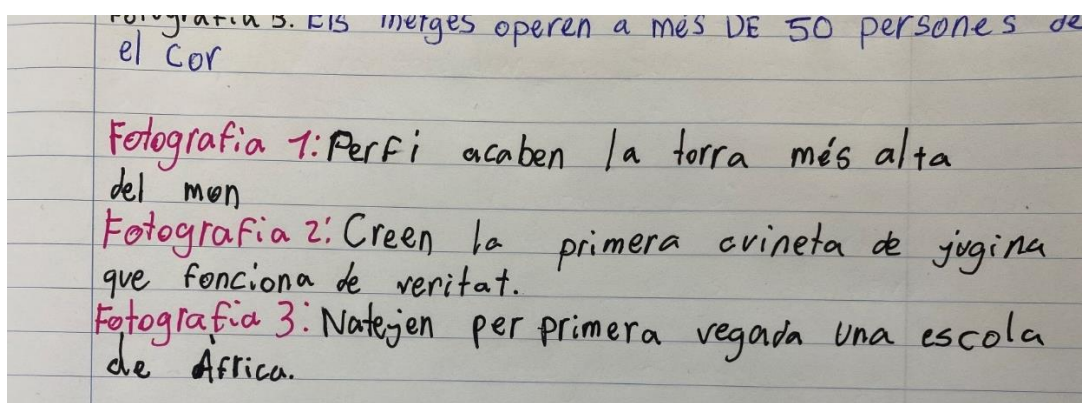 Fotografia 3. Els metges operen a més DE 50 persones de
el Cor
Fotografia 1: Perfi acaben la torra més alta
del mon
Fotografia 2: Creen la primera avineta de jugina
que fonciona de veritat.
Fotografia 3: Natejen per primera vegada una escola
de Àfrica.